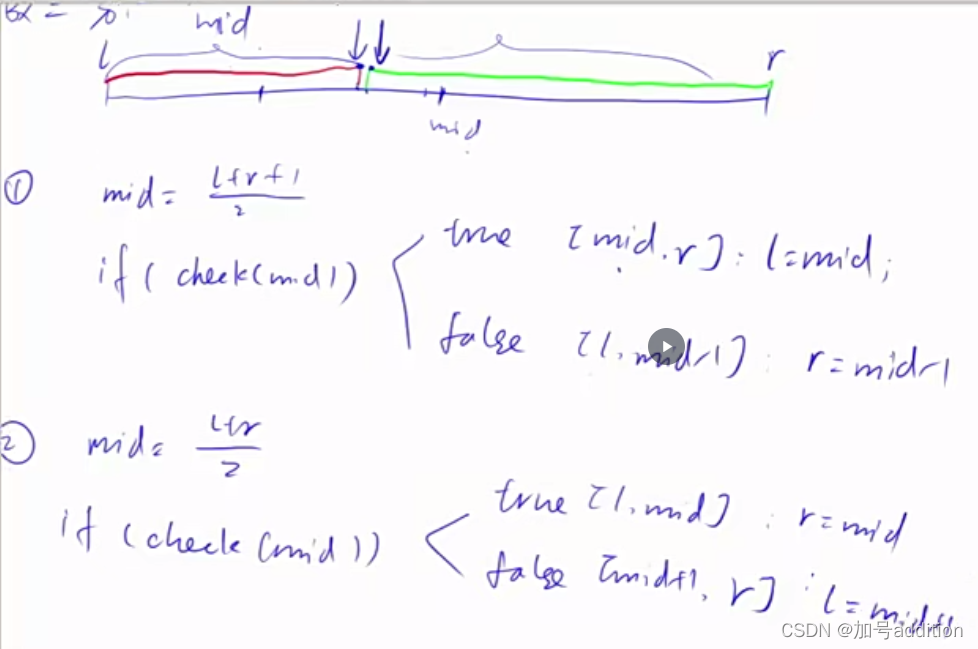 mid
l
r
mid
① mid = l+r+1
2
if ( check(mid) ) true [mid, r] : l=mid;
false [l, mid-1] : r=mid-1
② mid = l+r
2
if (check(mid)) true [l, mid] : r=mid
false [mid+1, r] : l=mid+1
CSDN @加号addition